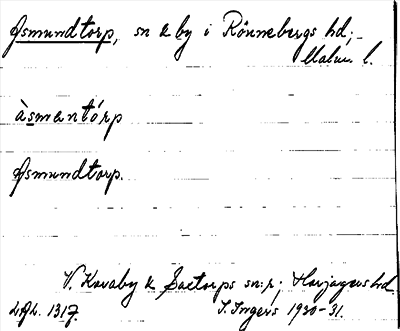 Åsmundtorp, sn & by i Rönnebergs hd;
Malm. l.
àsmentórp
Åsmundtorp.
V. Karaby & Saxtorps sn:r; Harjagers hd.
I. Ingers 1930-31.